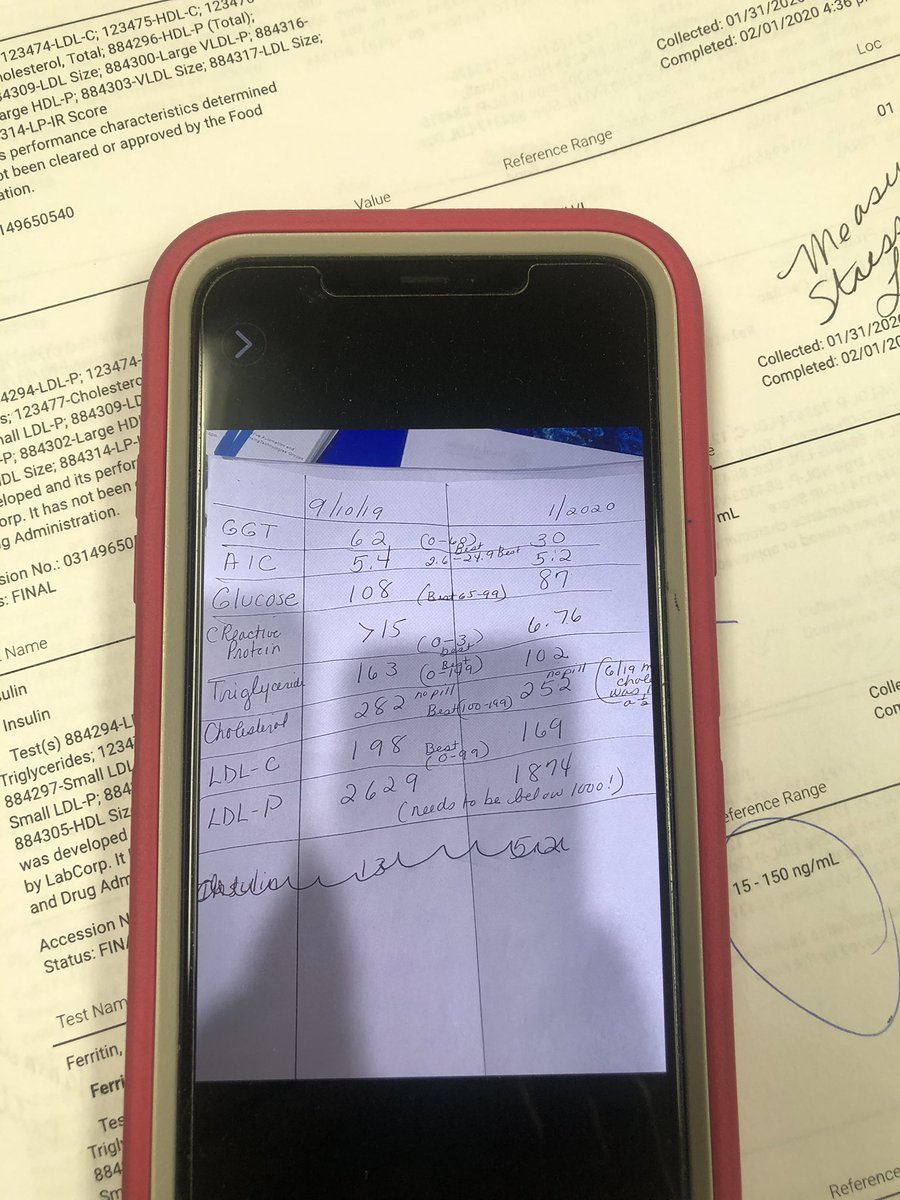 123474-LDL-C; 123475-HDL-C;
holesterol, Total; 884296-HDL-P (Total);
84309-LDL Size; 884300-Large VLDL-P; 884316-
arge HDL-P; 884303-VLDL Size; 884317-LDL Size;
314-LP-IR Score
s performance characteristics determined
ot been cleared or approved by the Food
ation.
149650540
Value
Reference Range
Collected: 01/31/2020
Completed: 02/01/2020 4:36 p
Loc
01
Measu
Stress
Collected: 01/31/2020
Completed: 02/01/20
4294-LDL-P; 123474-
s; 123477-Cholestero
mall LDL-P; 884309-LD
-P; 884302-Large HD
DL Size; 884314-LP-I
eloped and its perfor
orp. It has not been
g Administration.
sion No.: 03149650
s: FINAL
Name
sulin
Insulin
Test(s) 884294-L
Triglycerides; 1234
884297-Small LDL
Small LDL-P; 884
884305-HDL Size
was developed
by LabCorp. It h
and Drug Adm
Accession N
Status: FINA
Test Nam
Ferritin,
Ferri
Tes
Trigl
884
Sm
9/10/19 1/2020
GGT 62 (0-69) 30
Best
A1C 5.4 2.6-24.9 Best 5.2
Glucose 108 (Best 65-99) 87
C Reactive Protein >15 (0-3) best 6.76
Triglyceride 163 Best (0-149) 102
Cholesterol 282 no pill Best (100-199) 252 no pill
(6/19 m
chole
was
LDL-C 198 Best (0-99) 169
LDL-P 2629 1874
(needs to be below 1000!)
Insulin 13 5.2
mL
Colle
Con
eference Range
15 - 150 ng/mL
Reference